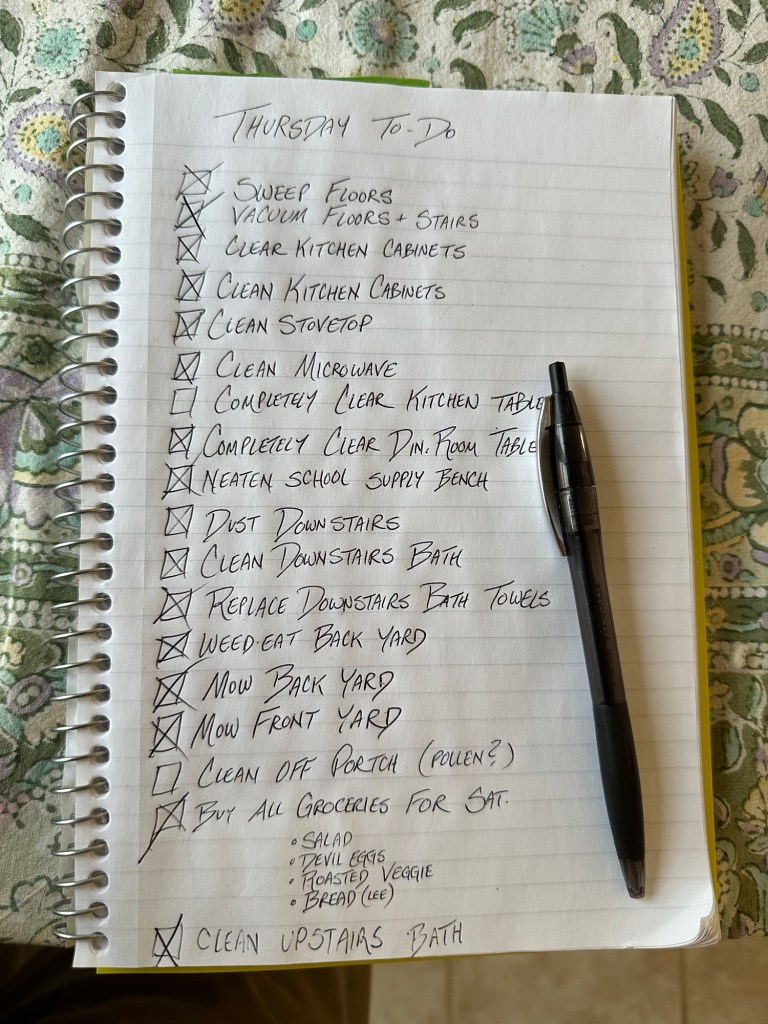 THURSDAY TO-DO
SWEEP FLOORS
VACUUM FLOORS + STAIRS
CLEAR KITCHEN CABINETS
CLEAN KITCHEN CABINETS
CLEAN STOVETOP
CLEAN MICROWAVE
COMPLETELY CLEAR KITCHEN TABLE
COMPLETELY CLEAR DIN. ROOM TABLE
NEATEN SCHOOL SUPPLY BENCH
DUST DOWNSTAIRS
CLEAN DOWNSTAIRS BATH
REPLACE DOWNSTAIRS BATH TOWELS
WEED-EAT BACK YARD
MOW BACK YARD
MOW FRONT YARD
CLEAN OFF PORTCH (POLLEN?)
BUY ALL GROCERIES FOR SAT.
• SALAD
• DEVIL EGGS
• ROASTED VEGGIE
• BREAD (LEE)
CLEAN UPSTAIRS BATH